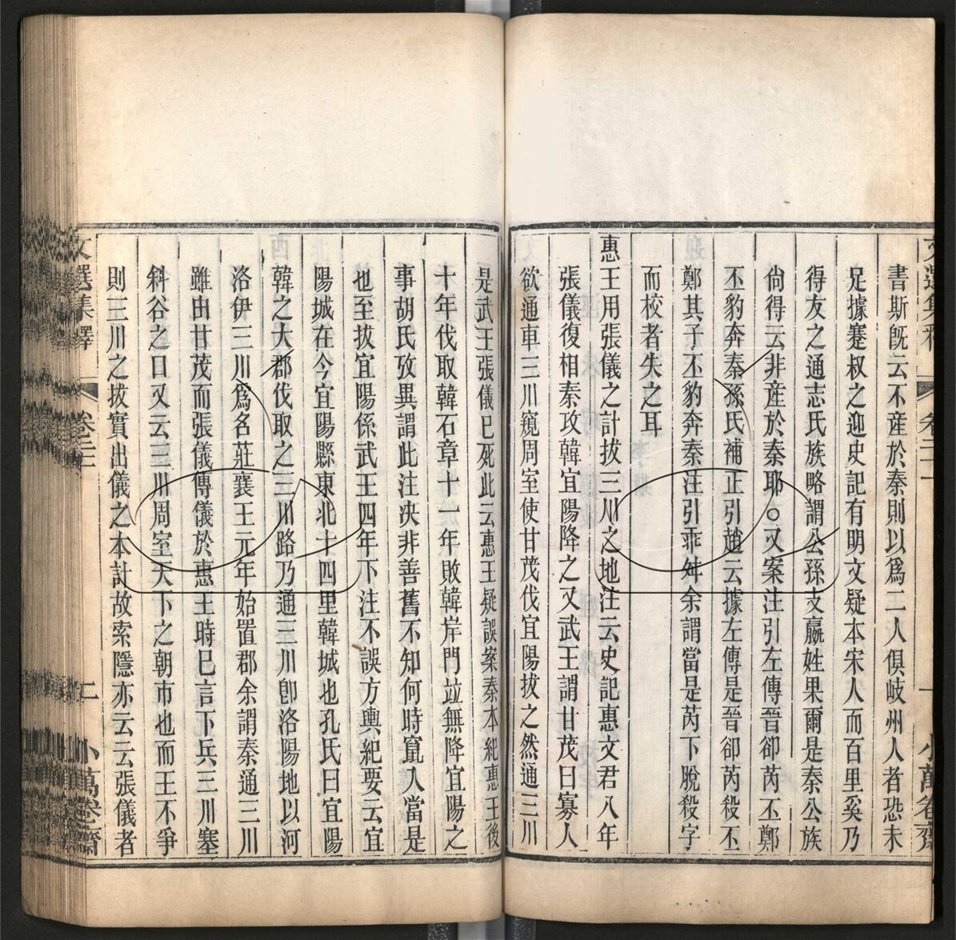 文選集釋 卷二十一 一 小萬卷齋
書斯旣云不產於秦則以爲二人俱岐州人者恐未
足據蹇叔之迎史記有明文疑本宋人而百里奚乃
得友之通志氏族略謂公孫支嬴姓果爾是秦公族
尙得云非產於秦耶○又案注引左傳晉卻芮丕鄭
丕豹奔秦孫氏補正引趙云據左傳是晉卻芮殺丕
鄭其子丕豹奔秦注引乖舛余謂當是芮下脫殺字
而校者失之耳
惠王用張儀之計拔三川之地注云史記惠文君八年
張儀復相秦攻韓宜陽降之又武王謂甘茂曰寡人
欲通車三川窺周室使甘茂伐宜陽拔之然通三川
是武王張儀已死此云惠王疑誤案秦本紀惠王後
十年伐取韓石章十一年敗韓岸門竝無降宜陽之
事胡氏攷異謂此注決非善舊不知何時竄入當是
也至拔宜陽係武王四年下注不誤方輿紀要云宜
陽城在今宜陽縣東北十四里韓城也孔氏曰宜陽
韓之大郡伐取之三川路乃通三川卽洛陽地以河
洛伊三川爲名莊襄王元年始置郡余謂秦通三川
雖由甘茂而張儀傳儀於惠王時已言下兵三川塞
斜谷之口又云三川周室天下之朝市也而王不爭
則三川之拔實出儀之本計故索隱亦云云張儀者
文選集釋 卷二十一 二 小萬卷齋